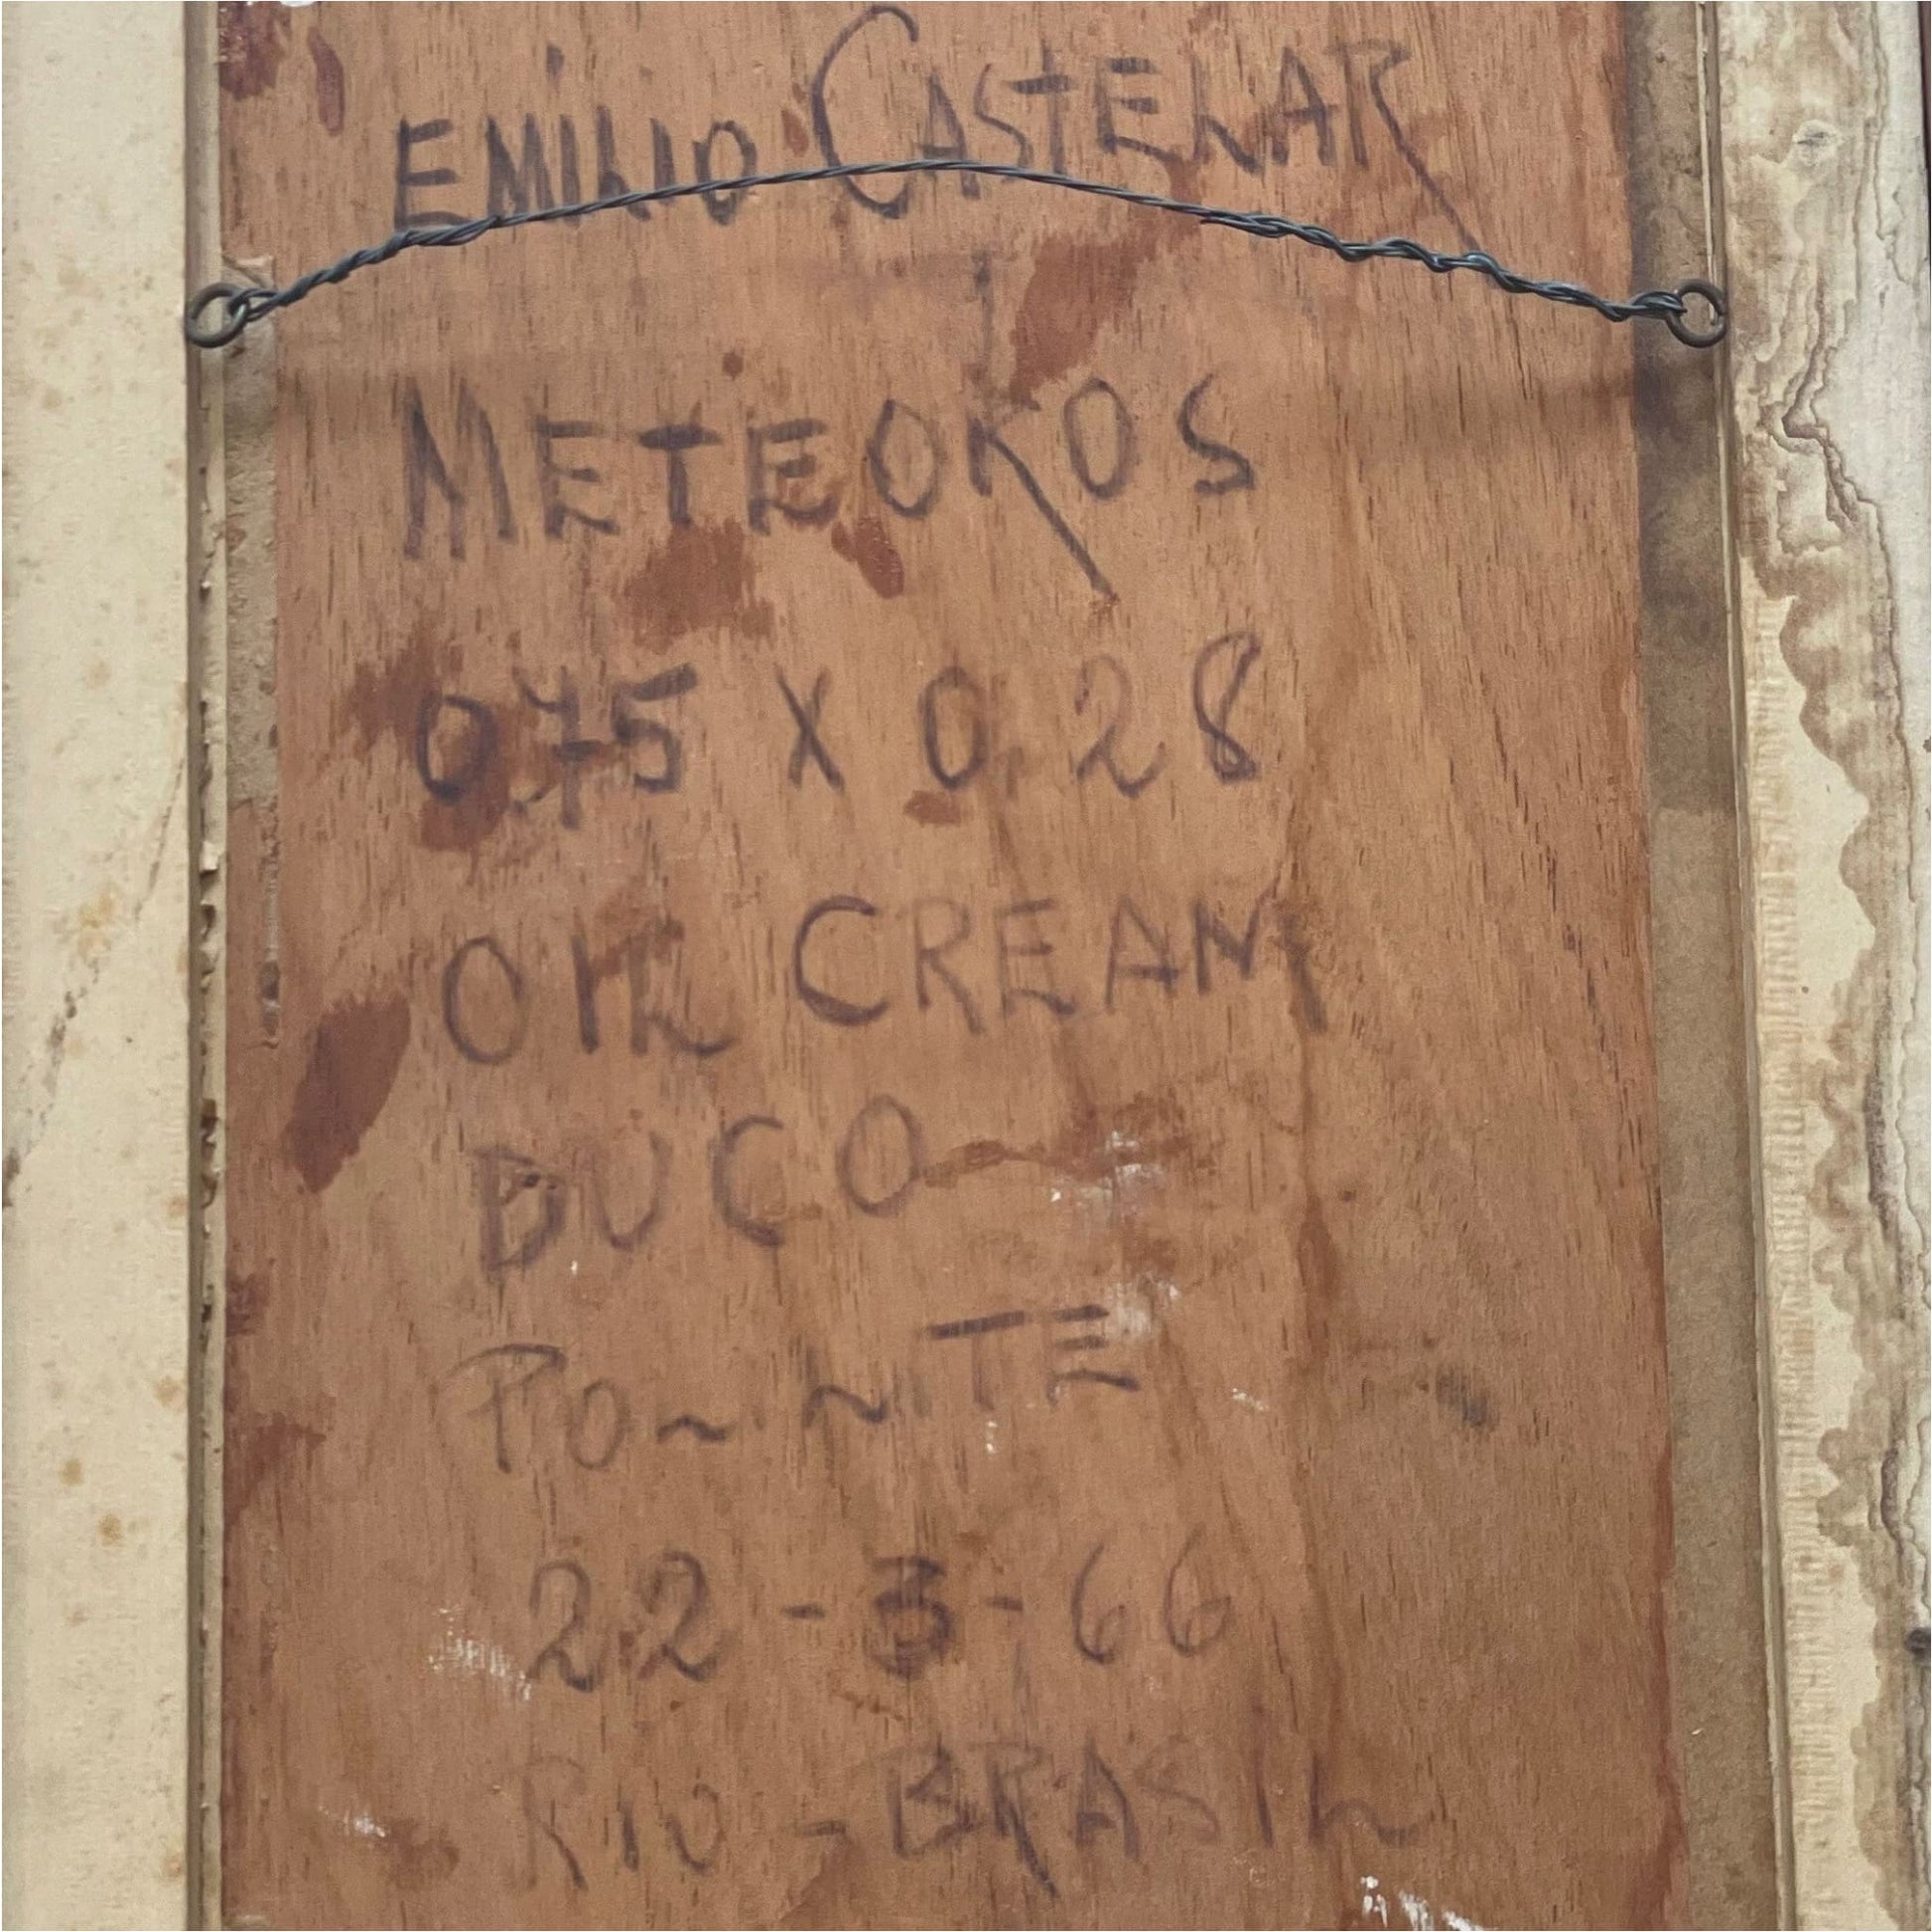 EMILIO CASTELAR
METEOROS
0,75 X 0,28
OIL CREAM
DUCO
POLILITE
22-3-66
RIO-BRASIL